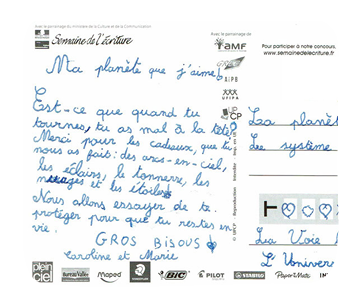 Avec le parrainage du ministère de la Culture et de la Communication
Semaine de l'écriture
Avec le parrainage de
AMF
AIPB
USIPA
CP
Pour participer à notre concours,
www.semainedelecriture.fr.
Ma planète que j'aime,
Est-ce que quand tu
tournes, tu as mal à la tête
Merci pour les cadeaux, que tu
nous as fait: des arcs-en-ciel,
les éclairs, le tonnerre, les
nuages et les étoiles
Nous allons essayer de te
protéger pour que tu restes en
vie.
GROS BISOUS
Caroline et Marie
La planèt
Le système
La Voie
L'Univer
plein ciel
Bureau Vallée
Maped
BIC
PILOT
STABILO
Paper Mate
INC